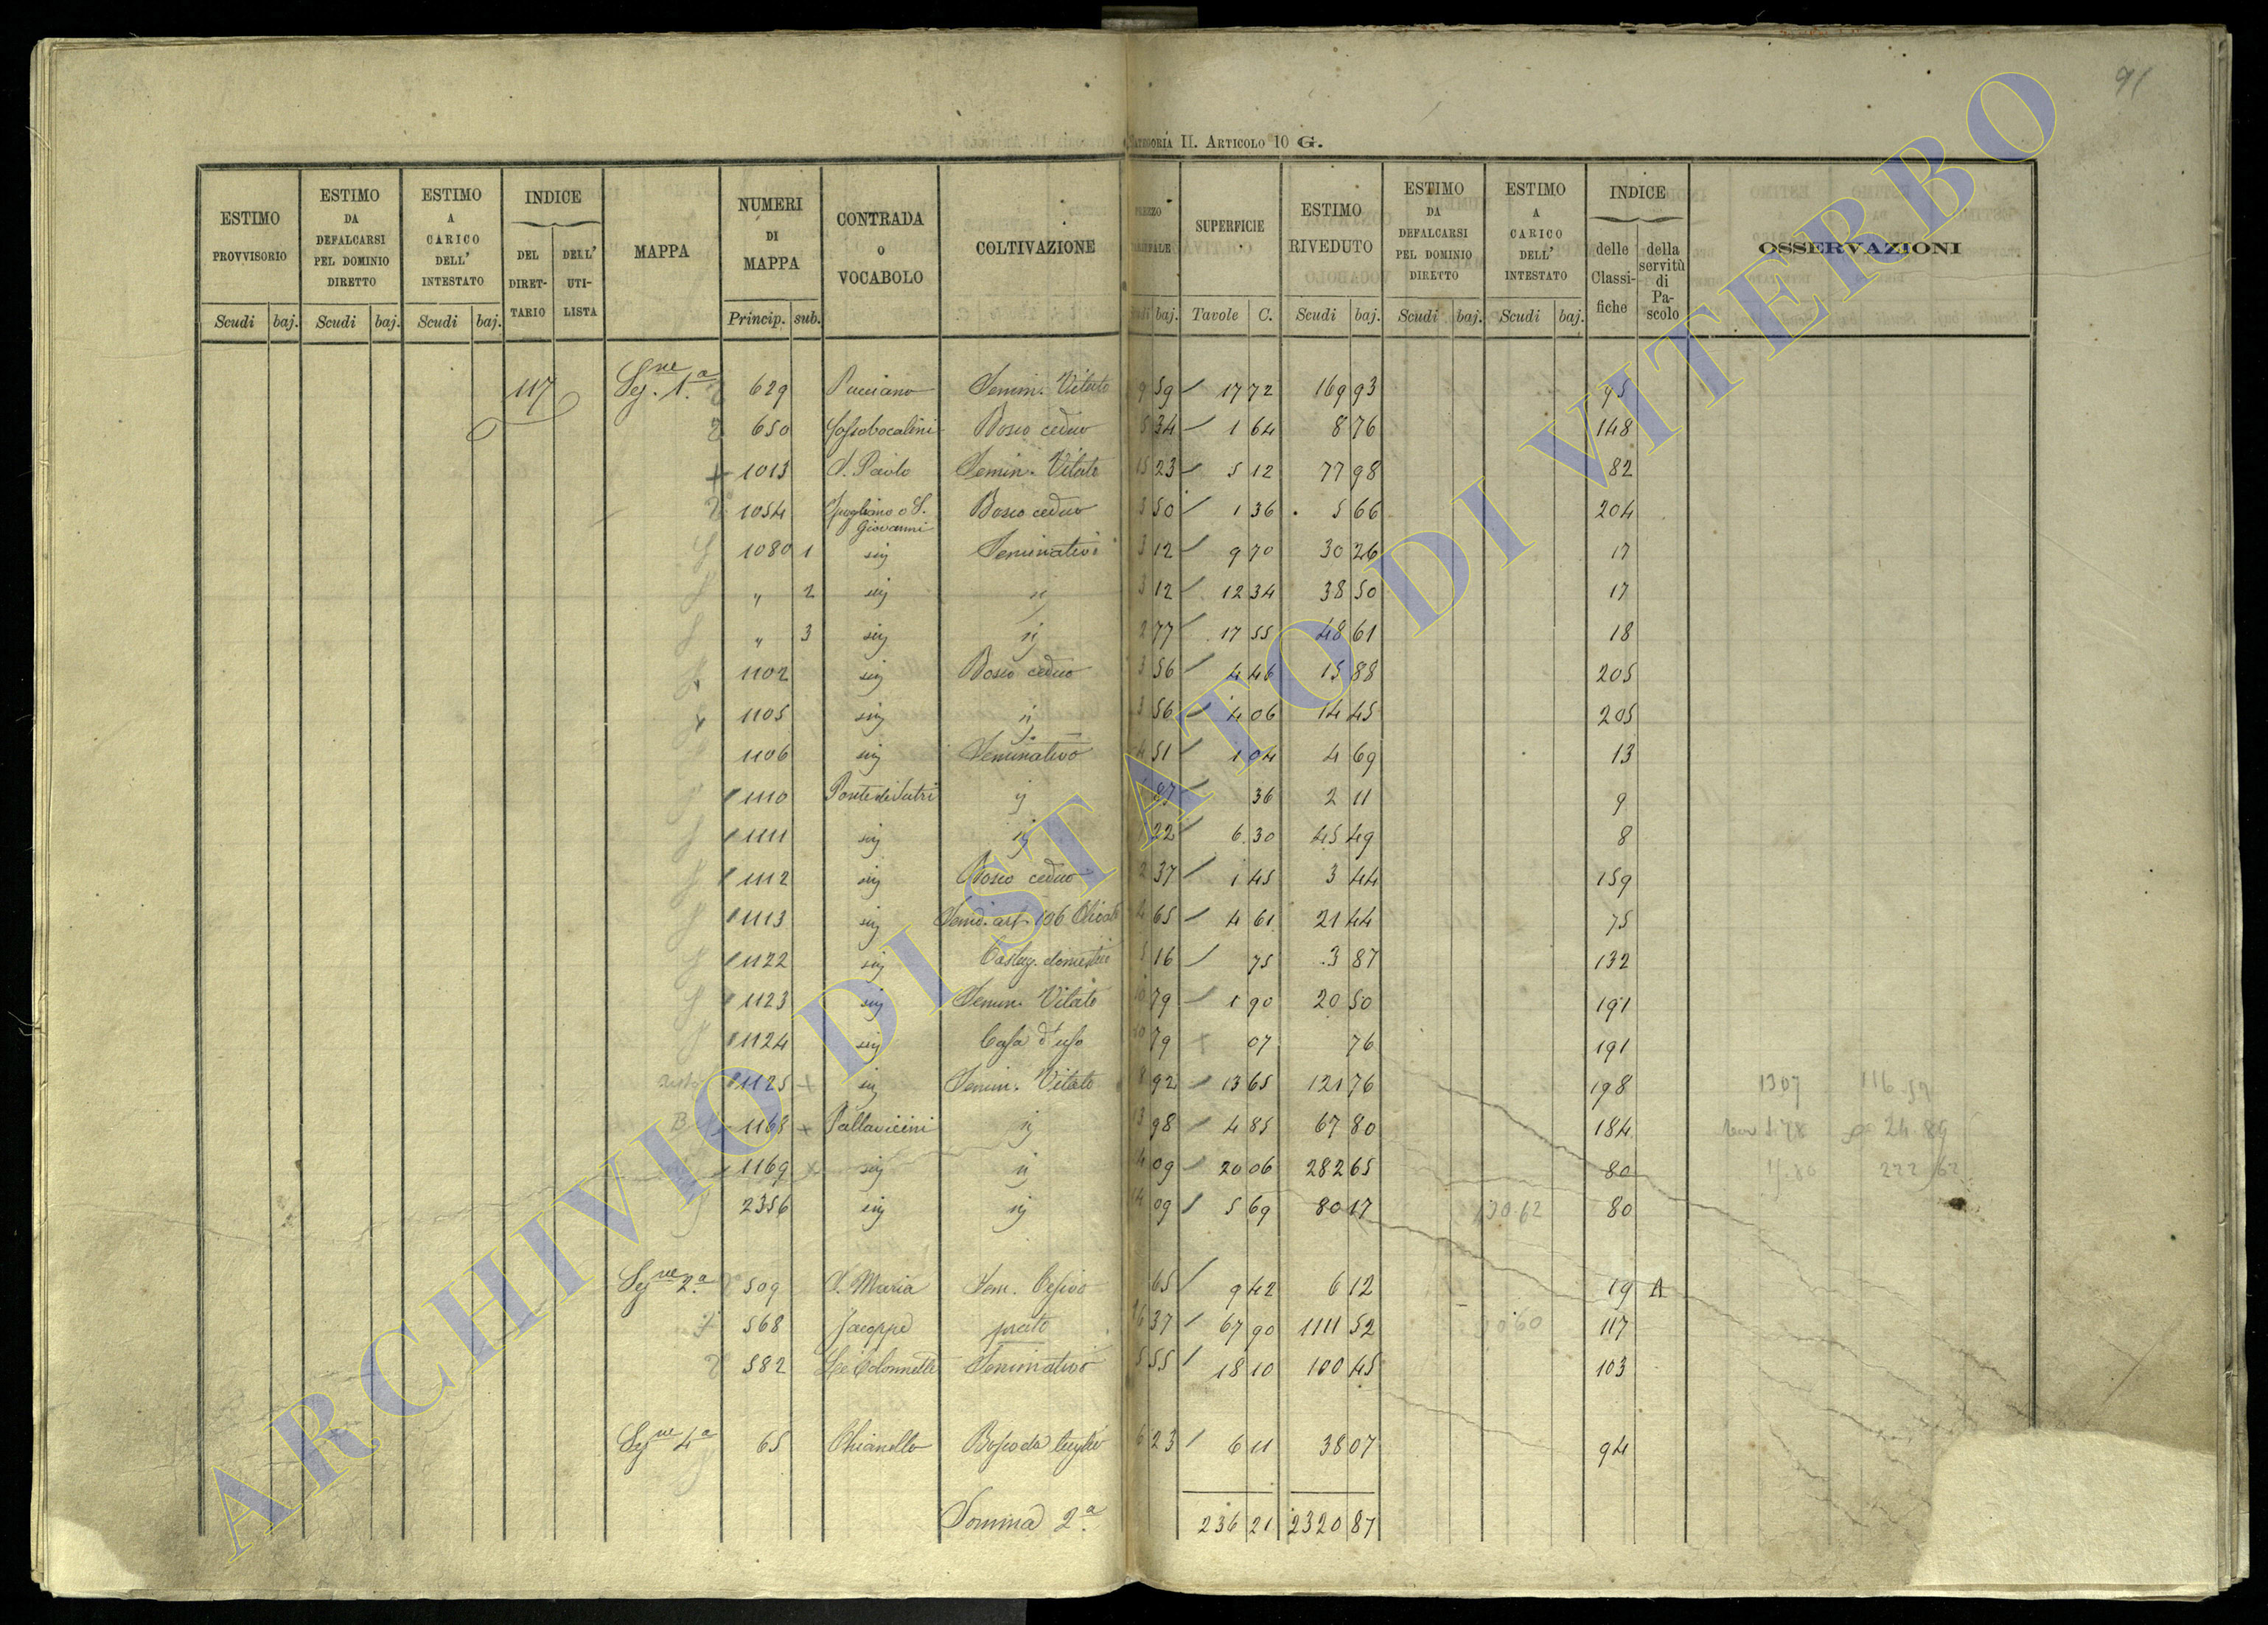 91
CATEGORIA II. ARTICOLO 10 G.
ESTIMO PROVVISORIO
ESTIMO DA DEFALCARSI PEL DOMINIO DIRETTO
ESTIMO A CARICO DELL' INTESTATO
INDICE
DEL DIRETTARIO
DELL' UTILISTA
MAPPA
NUMERI DI MAPPA
CONTRADA O VOCABOLO
COLTIVAZIONE
PREZZO
SUPERFICIE
ESTIMO RIVEDUTO
ESTIMO DA DEFALCARSI PEL DOMINIO DIRETTO
ESTIMO A CARICO DELL' INTESTATO
INDICE
delle Classifiche
della servitù di Pascolo
OSSERVAZIONI
Scudi baj. Scudi baj. Scudi baj. Princip. sub. baj. Tavole C. Scudi baj. Scudi baj. Scudi baj.
117 Sez.ne 1.a 629 Pacciano Semin. Vitato 9 59 17 72 169 93 95
650 Fossobocalini Bosco ceduo 5 34 1 64 8 76 148
1013 S. Paolo Semin. Vitato 15 23 5 12 77 98 82
1054 o S. Giovanni Bosco ceduo 3 50 1 36 5 66 204
1080 1 sig Seminativo 3 12 9 70 30 26 17
" 2 sig ij 3 12 12 34 38 50 17
" 3 sig ij 2 77 17 55 48 61 18
1102 sig Bosco ceduo 3 56 4 46 15 88 205
1105 sig ij 3 56 4 06 14 45 205
1106 sig Seminativo 4 51 1 04 4 69 13
1110 Ponte di Sutri ij 87 36 2 11 9
1111 sig ij 22 6 30 45 49 8
1112 sig Bosco ceduo 2 37 1 45 3 44 159
1113 sig 4 65 4 61 21 44 75
1122 sig Castag. domestici 5 16 75 3 87 132
1123 sig Semin. Vitato 10 79 1 90 20 50 191
1124 sig Casa d'uso 10 79 07 76 191
1125 sig Semin. Vitato 8 92 13 65 121 76 198 1307
1163 Pallavicini ij 13 98 4 85 67 80 184 24.89
1169 sig ij 14 09 20 06 282 65 80 222 62
2356 sig ij 14 09 5 69 80 17 80
Sez.ne 2.a 509 S. Maria Sem. Cesivo 65 9 42 6 12 19 A
568 Jacoppe prato 16 37 67 90 1111 52 117
582 Le Colonnette Seminativo 5 55 18 10 100 45 103
Sez.ne 4.a 65 Chianello Bosco da taglio 6 23 6 11 38 07 94
Somma 2.a 236 21 2320 87
ARCHIVIO DI STATO DI VITERBO